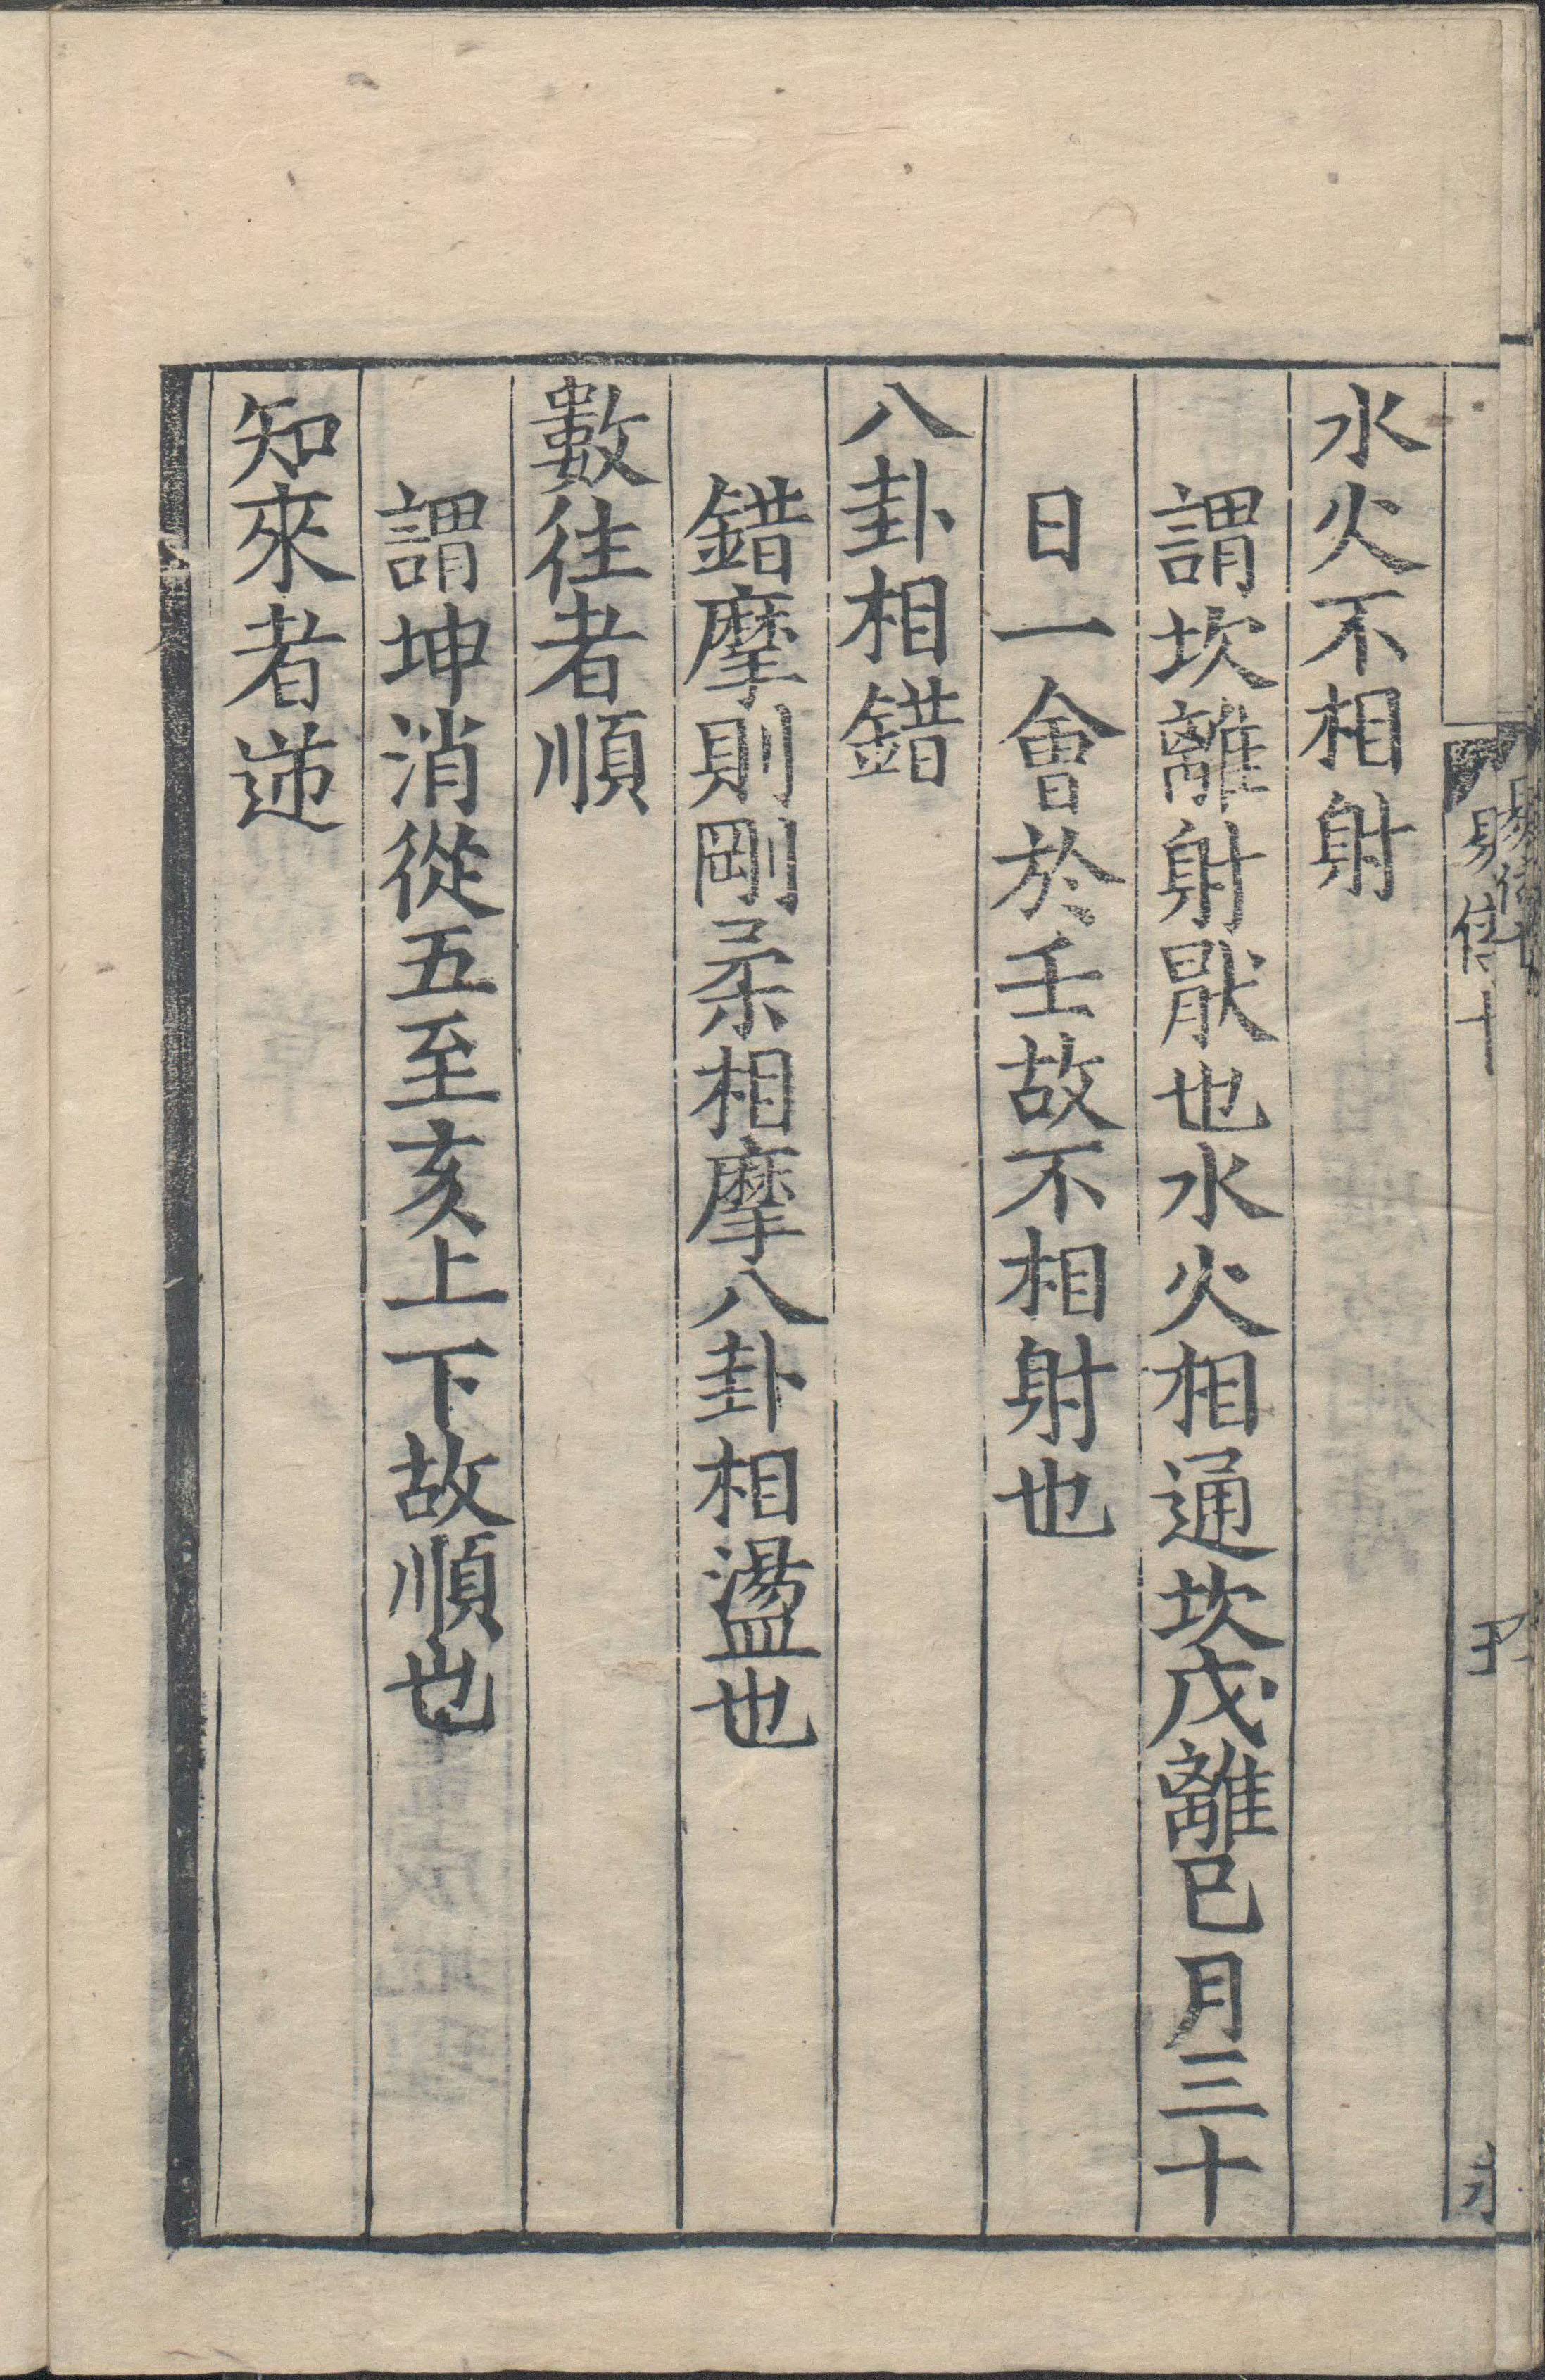 水火不相射
謂坎離射厭也水火相通坎戊離已月三十
日一會於壬故不相射也
八卦相錯
錯摩則剛柔相摩八卦相盪也
數往者順
謂坤消從五至亥上下故順也
知來者逆
易傳十